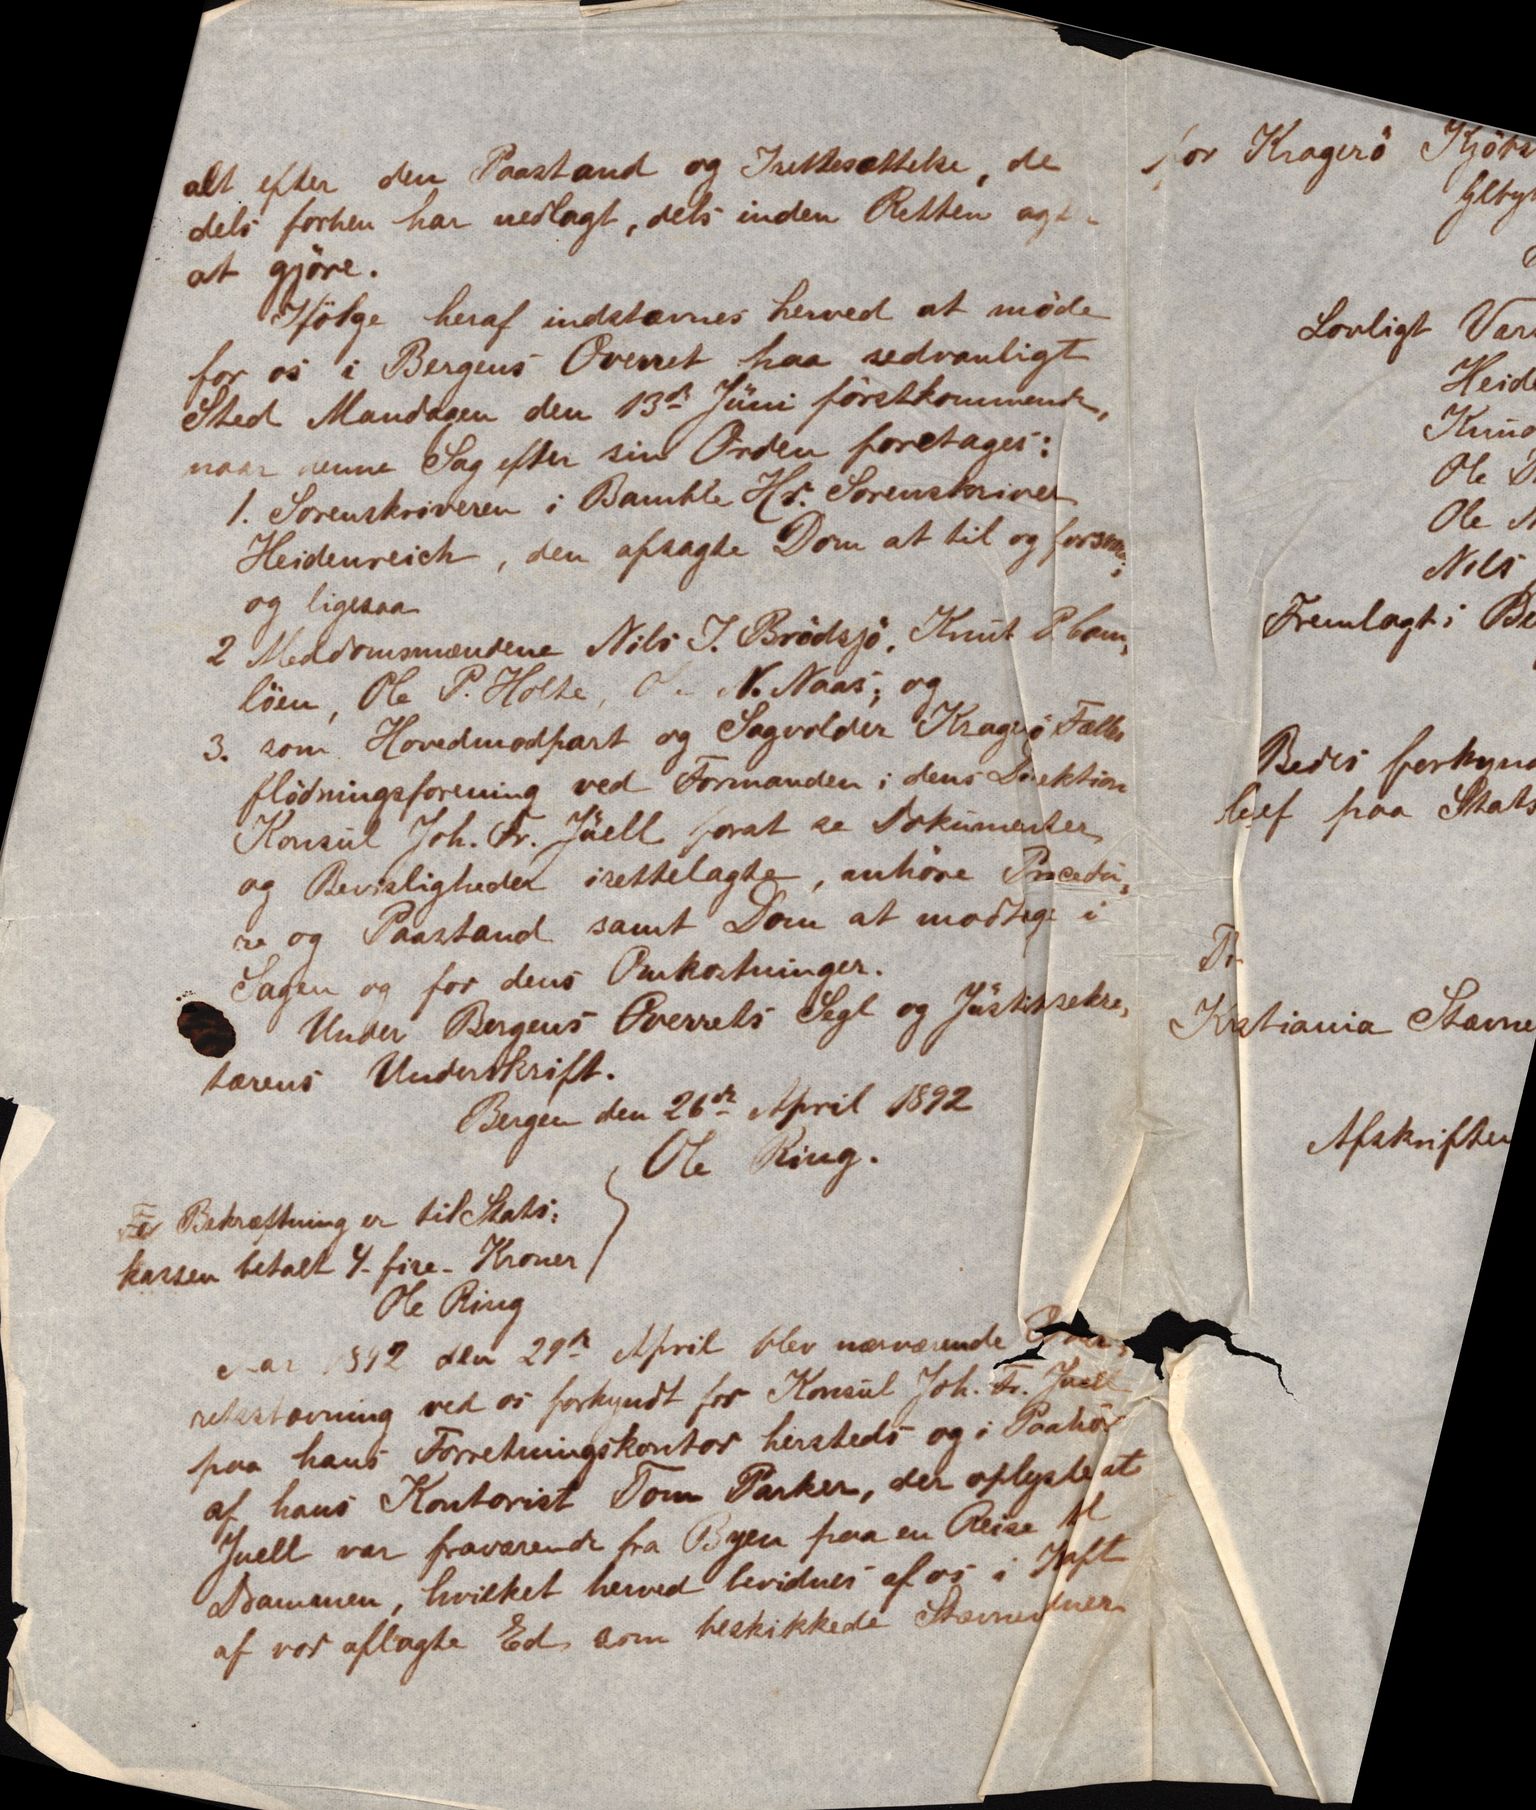 alt efter den Paastand og Irettesættelse, de
dels forhen har nedlagt, dels inden Retten agter
at gjöre.
Ifölge heraf indstævnes herved at möde
for os i Bergens Overret paa sedvanligt
Sted Mandagen den 13de Juni förstkommende,
naar denne Sag efter sin Orden foretages:
1. Sorenskriveren i Bamble Hr. Sorenskriver
Heidenreich, den afsagte Dom at til og forsvare;
og ligesaa
2 Meddomsmændene Nils J. Brödsjö, Knut P.
löen, Ole P. Holte, Ole N. Naas; og
3. som Hovedmodpart og Sagvolder Kragerö Fælles
flödningsforening ved Formanden i dens Direktion
Konsul Joh. Fr. Juell forat se Dokumenter
og Bevisligheder irettelagte, anhöre Procedu,
re og Paastand samt Dom at modtage i
Sagen og for dens Omkostninger.
Under Bergens Overrets Segl og Justitssekre,
tærens Underskrift.
Bergen den 26de April 1892
Ole Ring.
For Bekræftning er til Stats,
kassen betalt 4 - fire - Kroner
Ole Ring
Aar 1892 den 29de April blev nærværende Over,
retsstævning ved os forkyndt for Konsul Joh. Fr. Juell
paa hans Forretningskontor hersteds og i Paahör
af hans Kontorist Tom Parker, der oplyste at
Juell var fraværende fra Byen paa en Reise til
Drammen, hvilket herved bevidnes af os i Kraft
af vor aflagte Ed som beskikkede Stævnevidner
for Kragerö
Lovligt
Heide
Knud
Ole
Ole
Nils
Fremlagt i Be
Bedes forkynd
paa Stats
Krstiania Stævne
Afskriften